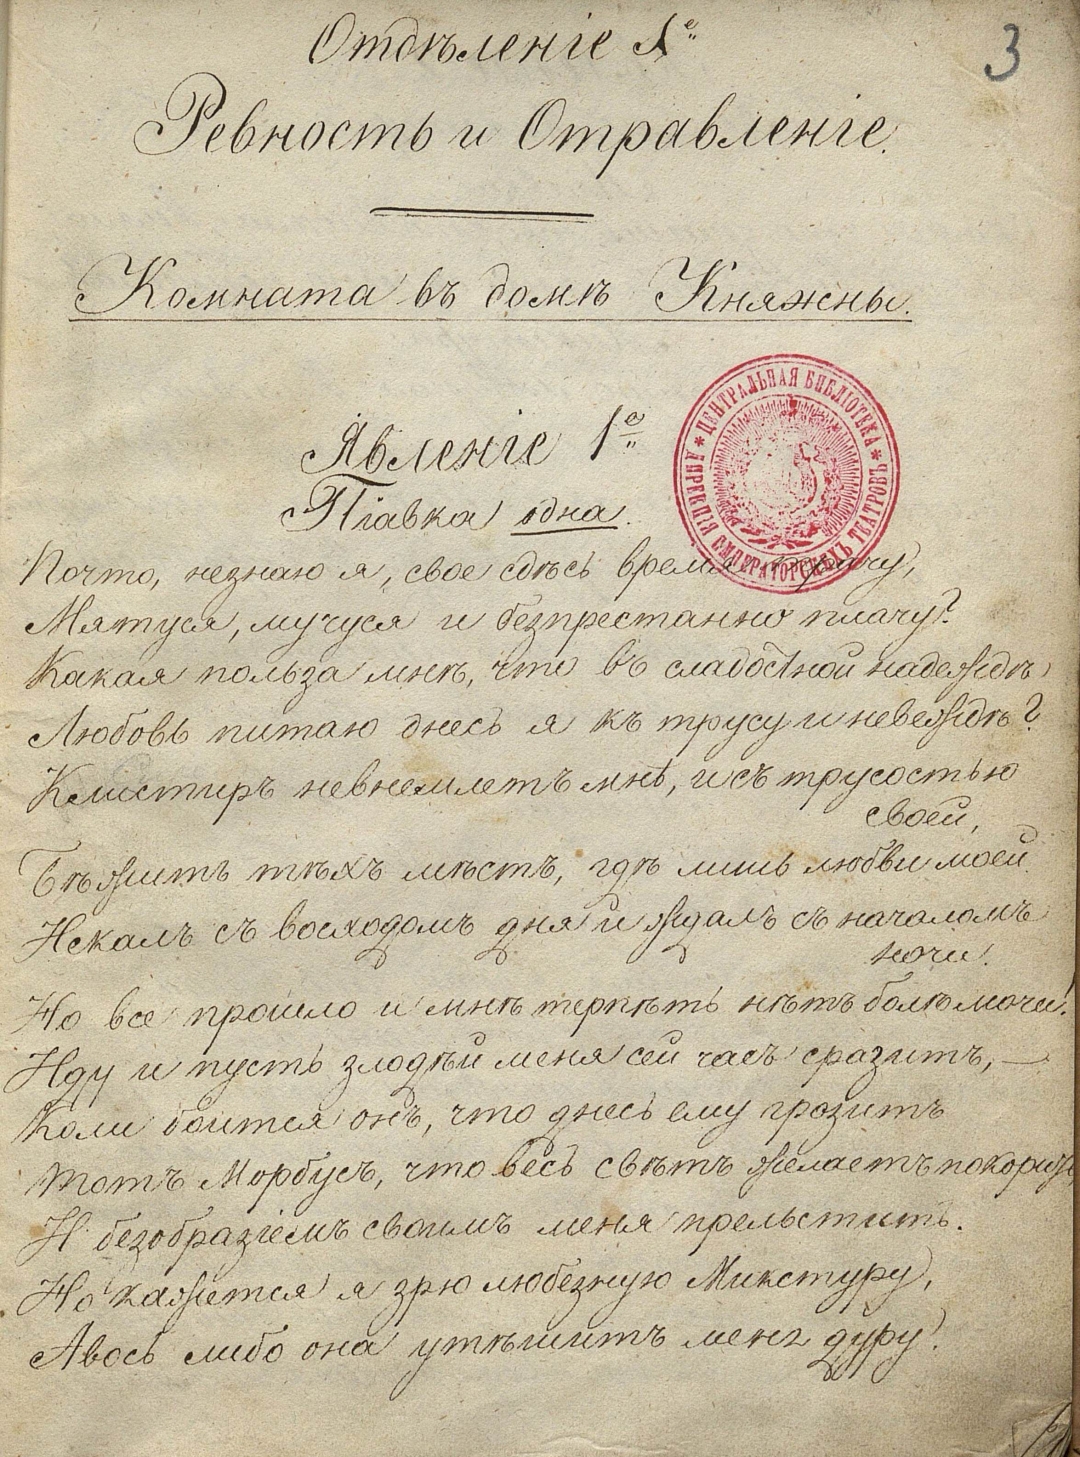 3
Отдѣленіе 1е
Ревность и Отравленіе.
Комната въ домѣ Княжны.
Явленіе 1е
Піавка одна.
ЦЕНТРАЛЬНАЯ БИБЛІОТЕКА * ДИРЕКЦІЯ ИМПЕРАТОРСКИХЪ ТЕАТРОВЪ *
Почто, незнаю я, свое сдѣсь время трачу,
Мятуся, мучуся и безпрестанно плачу?
Какая польза мнѣ, что въ сладостной надеждѣ,
Любовь питаю днесь я къ трусу и невеждѣ?
Клистиръ невнемлетъ мнѣ, и съ трусостью
своей,
Бѣжитъ тѣхъ мѣстъ, гдѣ лишь любви моей
Искалъ съ восходомъ дня и ждалъ съ началомъ
ночи.
Но все прошло и мнѣ терпѣть нѣтъ болѣ мочи!
Иду и пусть злодѣй меня сей часъ сразитъ, —
Коли боится онъ, что днесь ему грозитъ
Тотъ Морбусъ, что весь свѣтъ желаетъ
И безобразіемъ своимъ меня прельстить.
Но кажется я зрю любезную Микстуру,
Авось либо она утѣшитъ меня дуру!